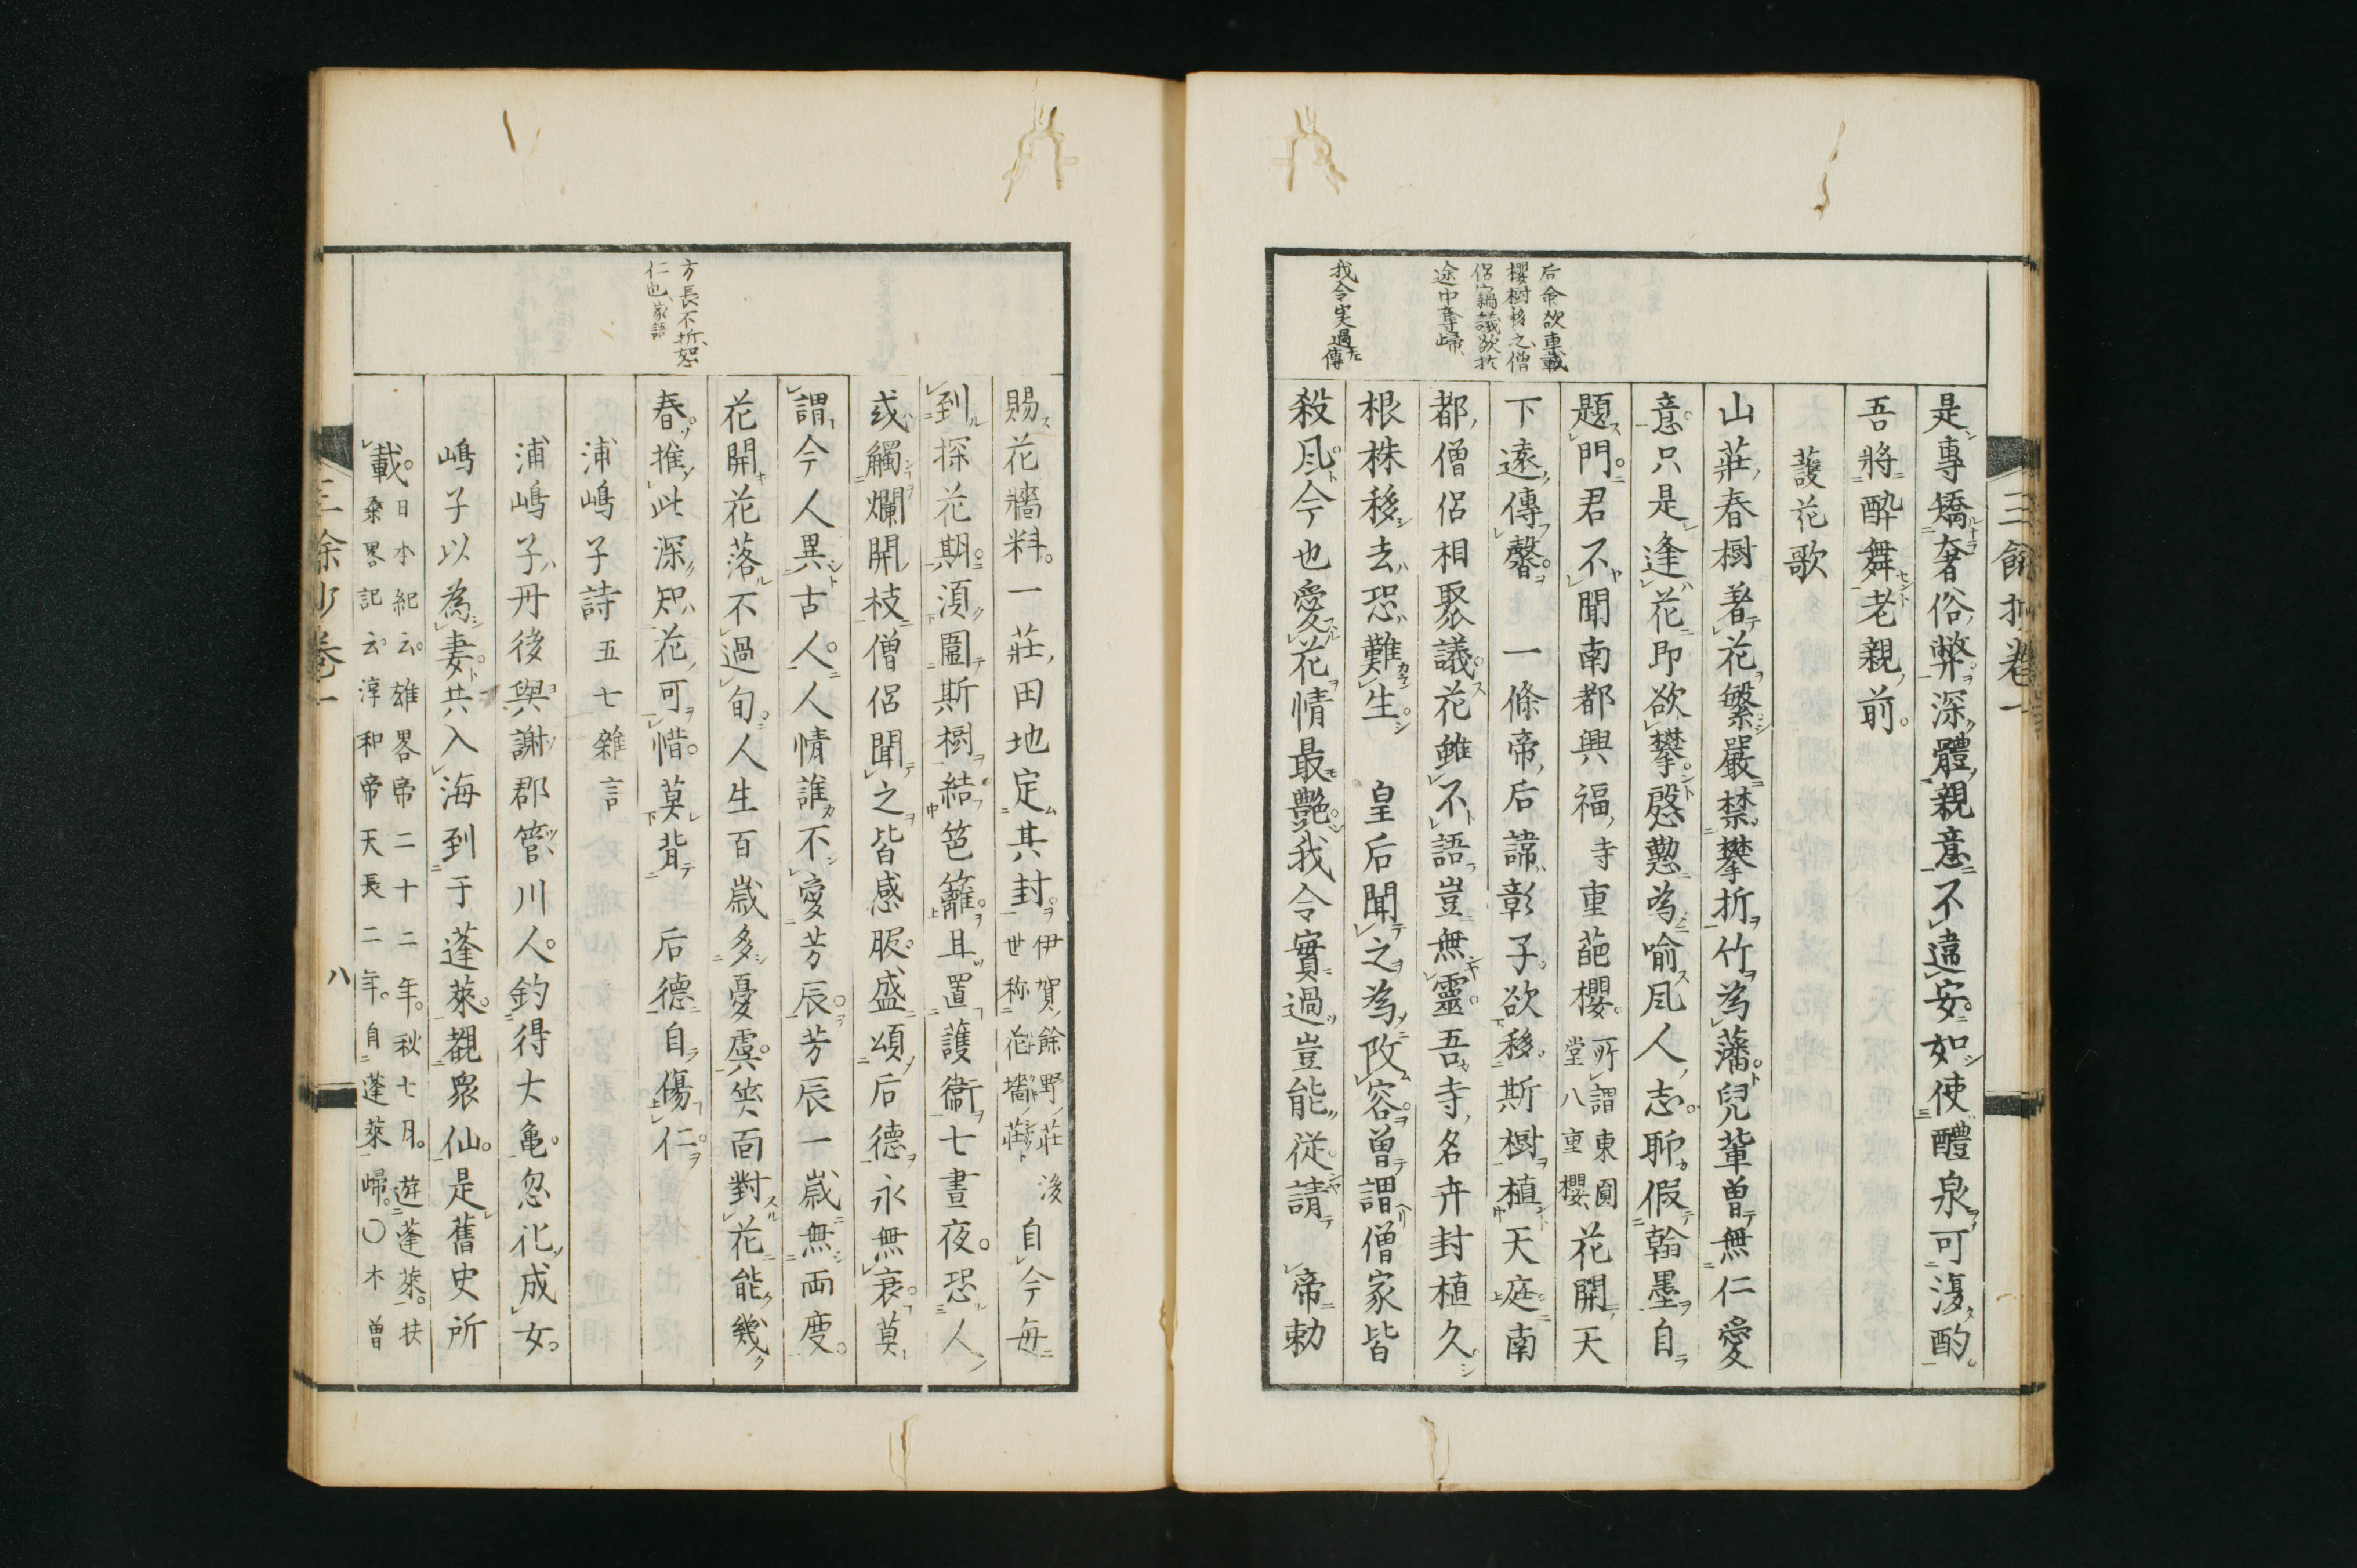 三餘抄卷一
是專驕奢俗弊深體親意不違安如使醴泉可復酌
吾將醉舞老親前
護花歌
山莊春樹着花繁嚴禁攀折竹為藩兒輩曽無仁愛
意只是逢花即欲攀慇懃為喻風人志聊假翰墨自
題門君不聞南都興福寺重葩櫻所謂東圓堂八重櫻花開天
下遠傳馨一條帝后諱彰子欲移斯樹植天庭南
都僧侶相聚議花雖不語豈無靈吾寺名卉封植久
根株移去恐難生 皇后聞之為改容曽謂僧家皆
殺風今也愛花情最艶我令實過豈能從請 帝勅
后命欲車載
櫻樹移之僧
侶竊議欲於
途中奪歸
我令実過左傳
賜花牆料一莊田地定其封伊賀余野莊後世称花墻莊自今每
到探花期須圍斯樹結笆籬且置護衞七晝夜恐人
或觸爛開枝僧侶聞之皆感服盛頌后德永無衰莫
謂今人異古人人情誰不愛芳辰芳辰一歲無兩度
花開花落不過旬人生百歲多憂虞笑面對花能幾
春推此深知花可惜莫背 后德自傷仁
方長不折恕
仁也家語
浦嶋子詩五七雜言
浦嶋子丹後與謝郡管川人釣得大亀忽化成女
嶋子以為妻共入海到于蓬萊覩衆仙是舊史所
載日本紀云雄畧帝二十二年秋七月遊蓬萊扶桒畧記云淳和帝天長二年自蓬萊歸〇木曽
三餘抄卷一
八